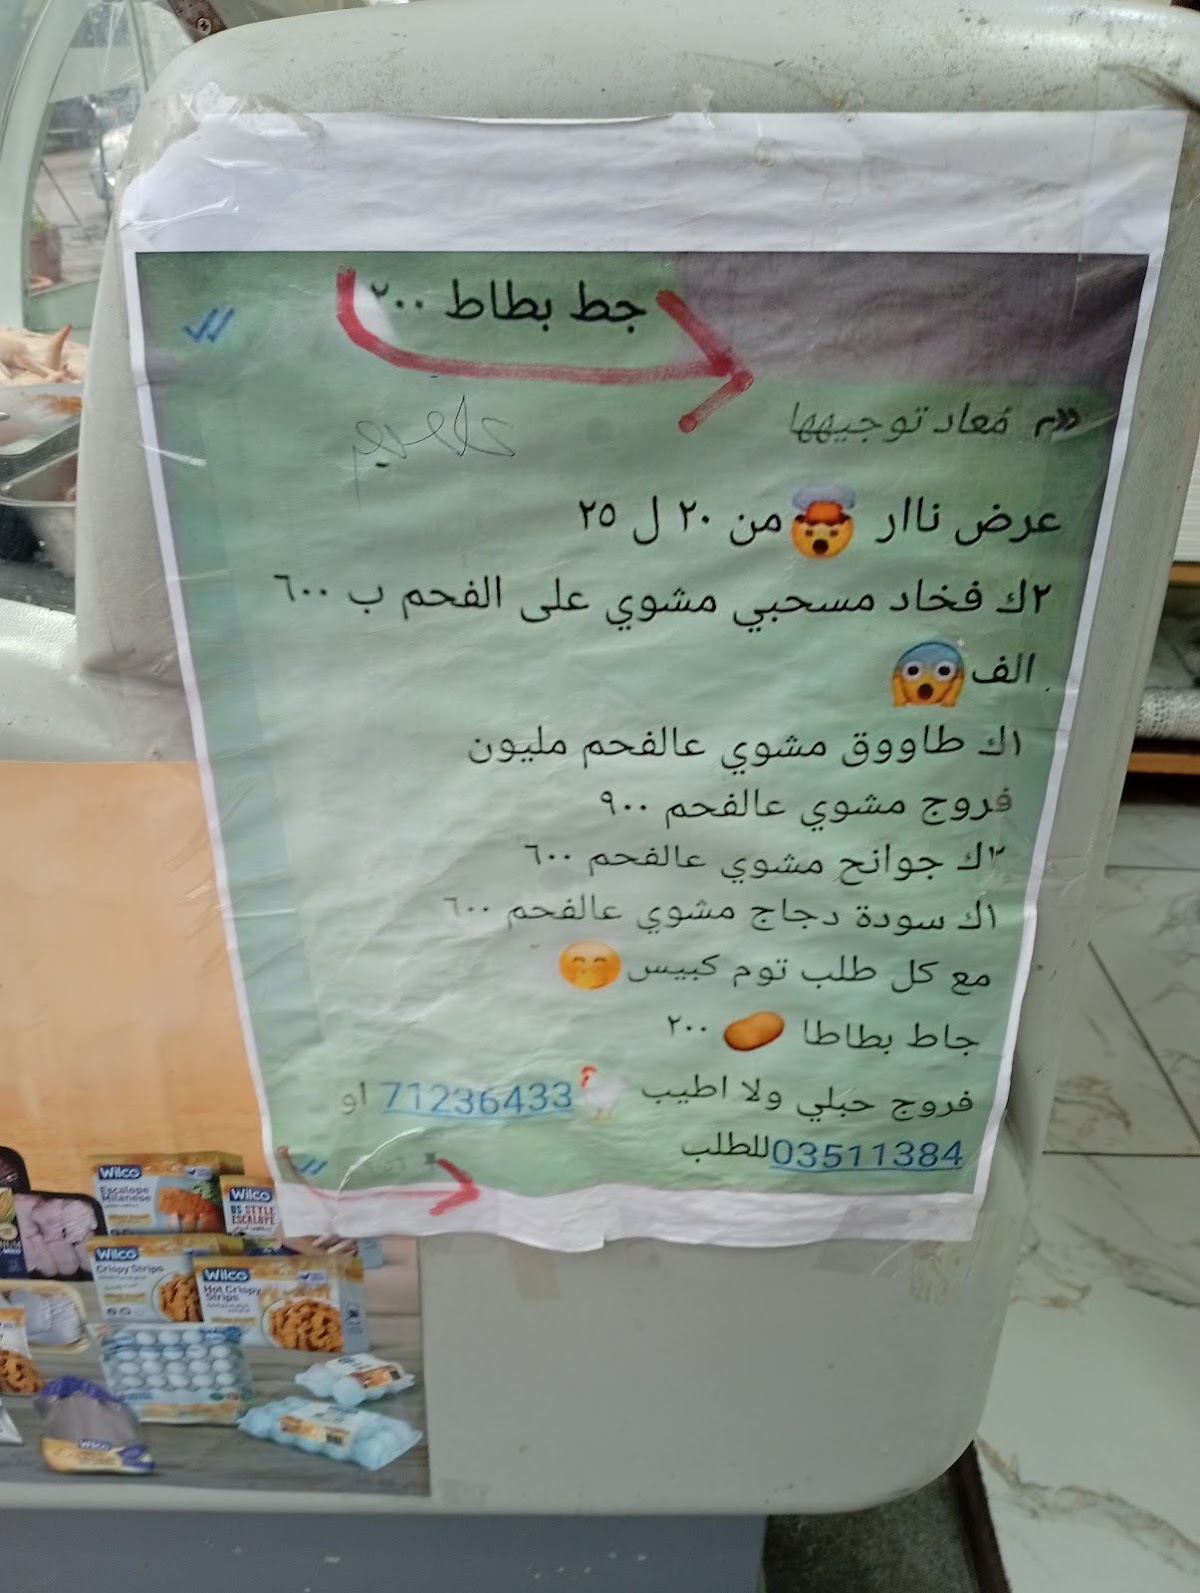 جط بطاط ٢٠٠
مُعاد توجيهها
عرض ناار 🤯 من ٢٠ ل ٢٥
٢ك فخاد مسحبي مشوي على الفحم ب ٦٠٠
الف 😱
١ك طاووق مشوي عالفحم مليون
فروج مشوي عالفحم ٩٠٠
٢ك جوانح مشوي عالفحم ٦٠٠
١ك سودة دجاج مشوي عالفحم ٦٠٠
مع كل طلب توم كبيس 🤭
جاط بطاطا 🥔 ٢٠٠
فروج حبلي ولا اطيب 🐓 71236433 او
03511384 للطلب
Wilco
Escalope
Milanese
Wilco
US STYLE
ESCALOPE
Wilco
Crispy Strips
Wilco
Hot Crispy
Strips
Wilco